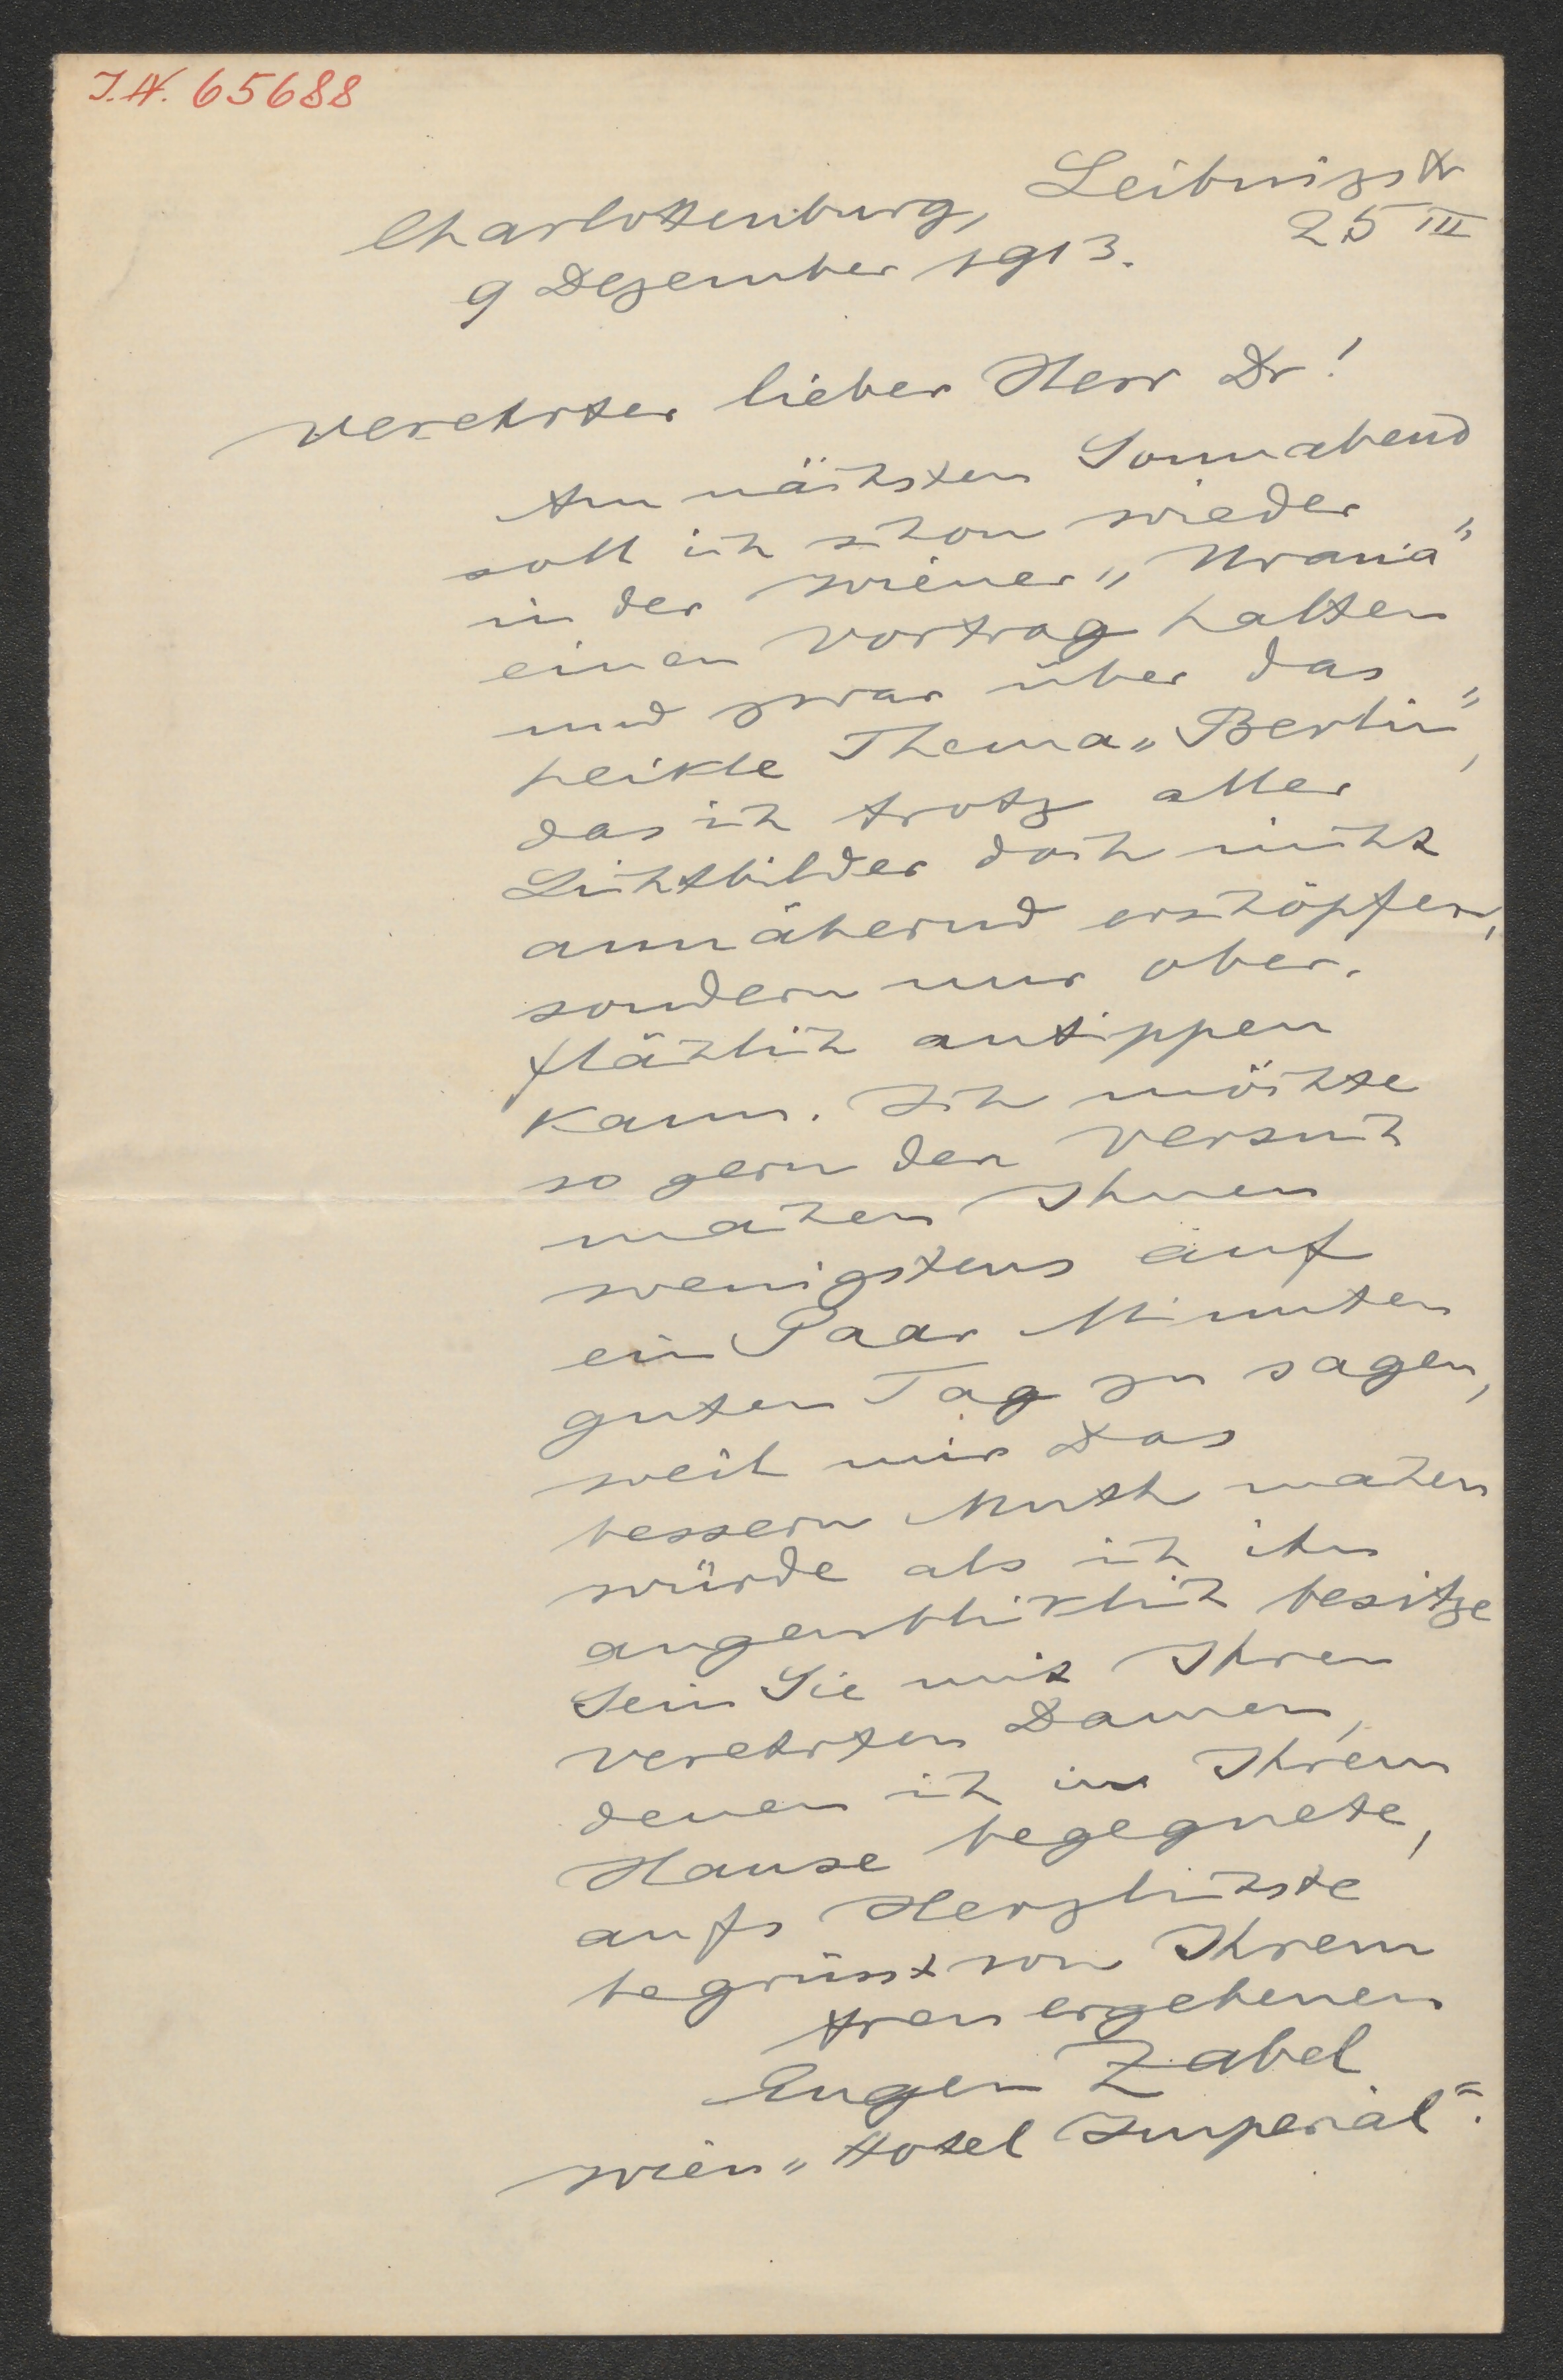 I.N. 65688
Charlottenburg, Leibnizstr
25 III
9 Dezember 1913.
Verehrter lieber Herr Dr!
Am nächsten Sonnabend
soll ich schon wieder
in der Wiener „Urania"
einen Vortrag halten
und zwar über das
heikle Thema „Berlin",
das ich trotz aller
Lichtbilder doch nicht
annähernd erschöpfen,
sondern nur ober-
flächlich antippen
kann. Ich möchte
so gern den Versuch
machen Ihnen
wenigstens auf
ein Paar Minuten
guten Tag zu sagen,
weil mir Das
bessern Muth machen
würde als ich ihn
augenblicklich besitze
Sein Sie mit Ihren
verehrten Damen,
denen ich in Ihrem
Hause begegnete,
aufs Herzlichste
begrüsst von Ihrem
treu ergebenen
Eugen Zabel
Wien „Hotel Imperial".